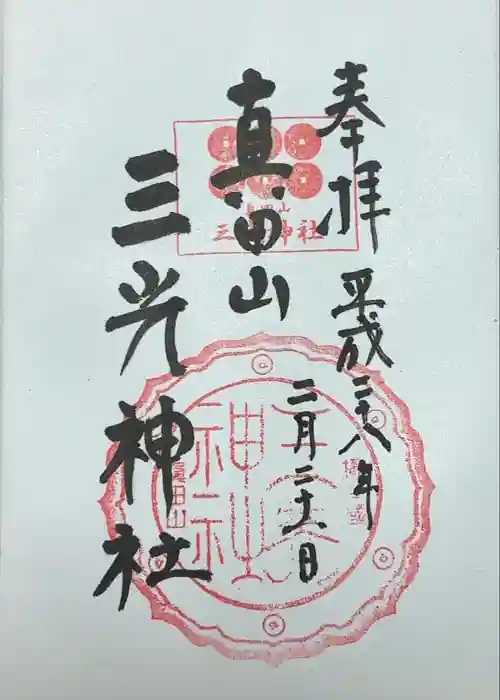 奉拝
平成二十八年
二月二十一日
真田山
三光神社
真田山
三光神社
真田山